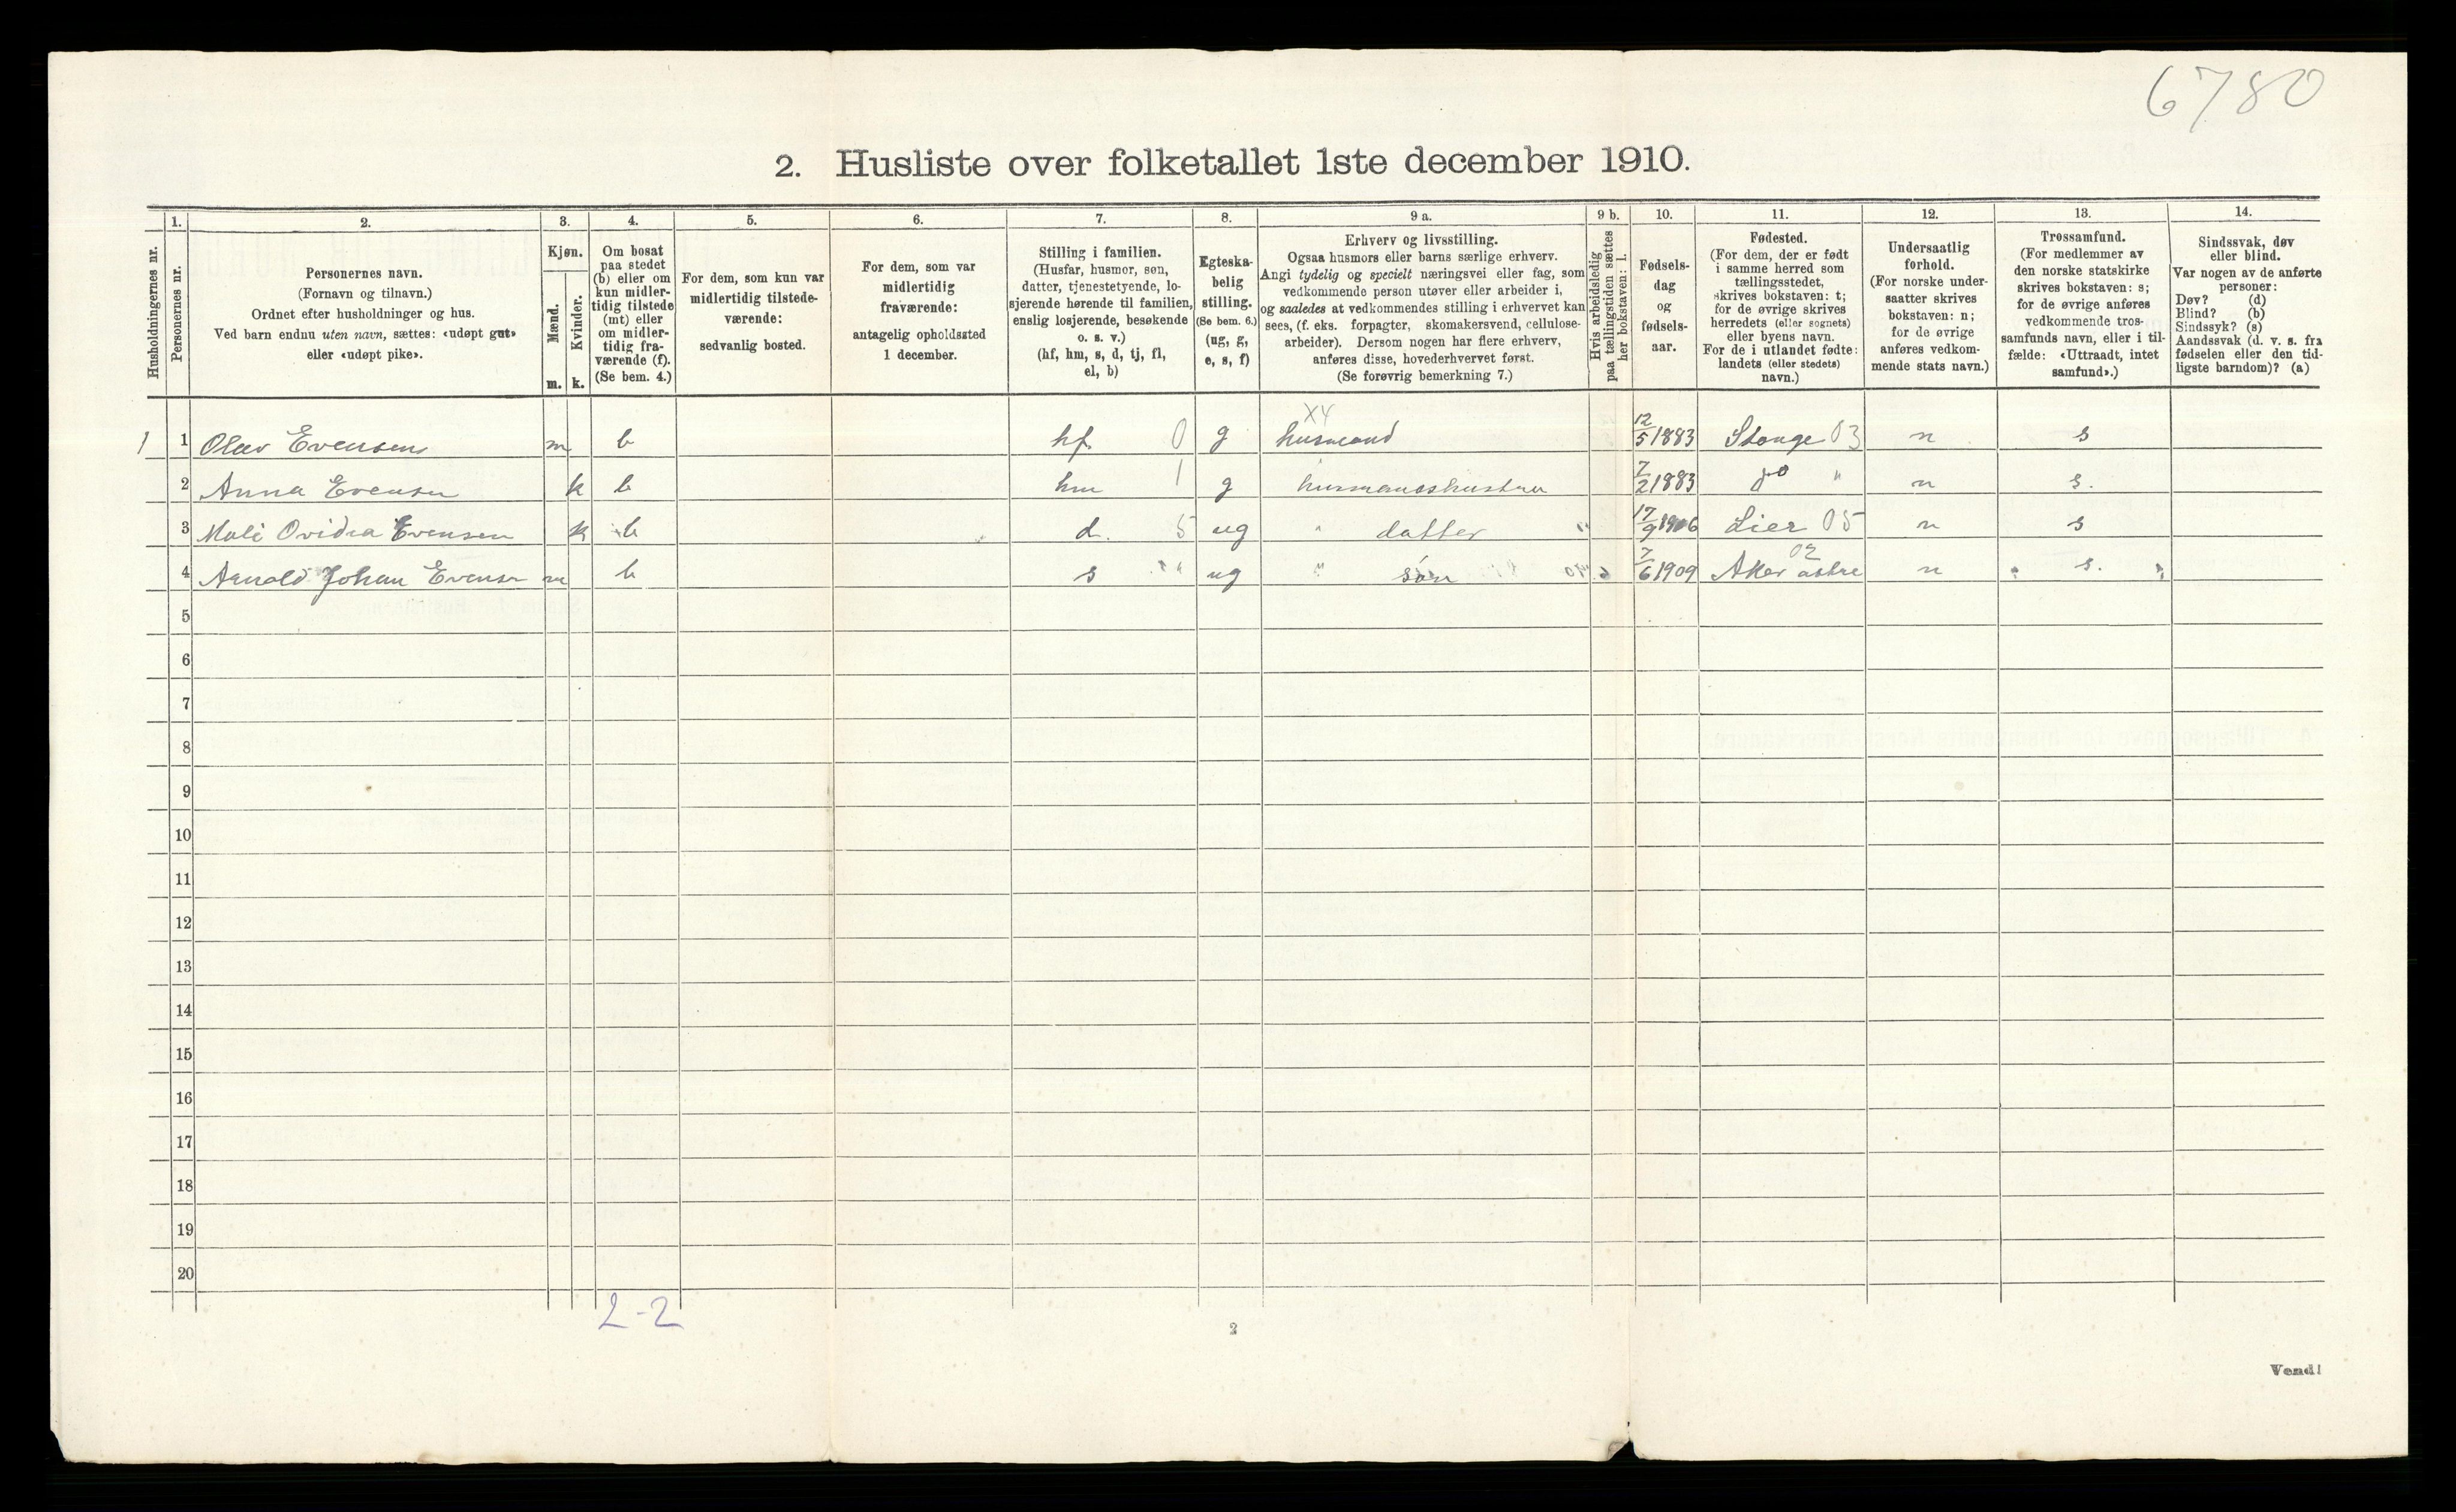 6780
2. Husliste over folketallet 1ste december 1910.
Husholdningernes nr.
1.
Personernes nr.
2.
Personernes navn.
(Fornavn og tilnavn.)
Ordnet efter husholdninger og hus.
Ved barn endnu uten navn, sættes: «udøpt gut»
eller «udøpt pike».
3.
Kjøn.
Mænd.
Kvinder.
m. k.
4.
Om bosat
paa stedet
(b) eller om
kun midler-
tidig tilstede
(mt) eller
om midler-
tidig fra-
værende (f).
(Se bem. 4.)
5.
For dem, som kun var
midlertidig tilstede-
værende:
sedvanlig bosted.
6.
For dem, som var
midlertidig
fraværende:
antagelig opholdssted
1 december.
7.
Stilling i familien.
(Husfar, husmor, søn,
datter, tjenestetyende, lo-
sjerende hørende til familien,
enslig losjerende, besøkende
o. s. v.)
(hf, hm, s, d, tj, fl,
el, b)
8.
Egteska-
belig
stilling.
(Se bem. 6.)
(ug, g,
e, s, f)
9 a.
Erhverv og livsstilling.
Ogsaa husmors eller barns særlige erhverv.
Angi tydelig og specielt næringsvei eller fag, som
vedkommende person utøver eller arbeider i,
og saaledes at vedkommendes stilling i erhvervet kan
sees, (f. eks. forpagter, skomakersvend, cellulose-
arbeider). Dersom nogen har flere erhverv,
anføres disse, hovederhvervet først.
(Se forøvrig bemerkning 7.)
9 b.
Hvis arbeidsledig
paa tællingstiden sættes
her bokstaven: l.
10.
Fødsels-
dag
og
fødsels-
aar.
11.
Fødested.
(For dem, der er født
i samme herred som
tællingsstedet,
skrives bokstaven: t;
for de øvrige skrives
herredets (eller sognets)
eller byens navn.
For de i utlandet fødte:
landets (eller stedets)
navn.)
12.
Undersaatlig
forhold.
(For norske under-
saatter skrives
bokstaven: n;
for de øvrige
anføres vedkom-
mende stats navn.)
13.
Trossamfund.
(For medlemmer av
den norske statskirke
skrives bokstaven: s;
for de øvrige anføres
vedkommende tros-
samfunds navn, eller i til-
fælde: «Uttraadt, intet
samfund».)
14.
Sindssvak, døv
eller blind.
Var nogen av de anførte
personer:
Døv? (d)
Blind? (b)
Sindssyk? (s)
Aandssvak (d. v. s. fra
fødselen eller den tid-
ligste barndom)? (a)
X4
1 1 Olav Evensen m b hf 0 g husmand 12/5 1883 Stange 03 n s
2 Anna Evensen k b hm 1 g husmandshustru 7/2 1883 do " n s.
3 Mali Ovidia Evensen k b d. 5 ug " datter 17/9 1906 Lier 05 n s
02
4 Arnold Johan Evensen m b s ug " søn 7/6 1909 Aker østre n s.
5
6
7
8
9
10
11
12
13
14
15
16
17
18
19
20
2-2
2
Vend!